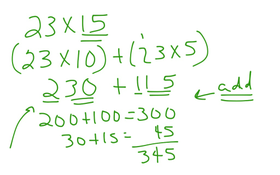 23 × 15
(23 × 10) + (23 × 5)
230 + 115 ← add
200 + 100 = 300
30 + 15 = 45
345